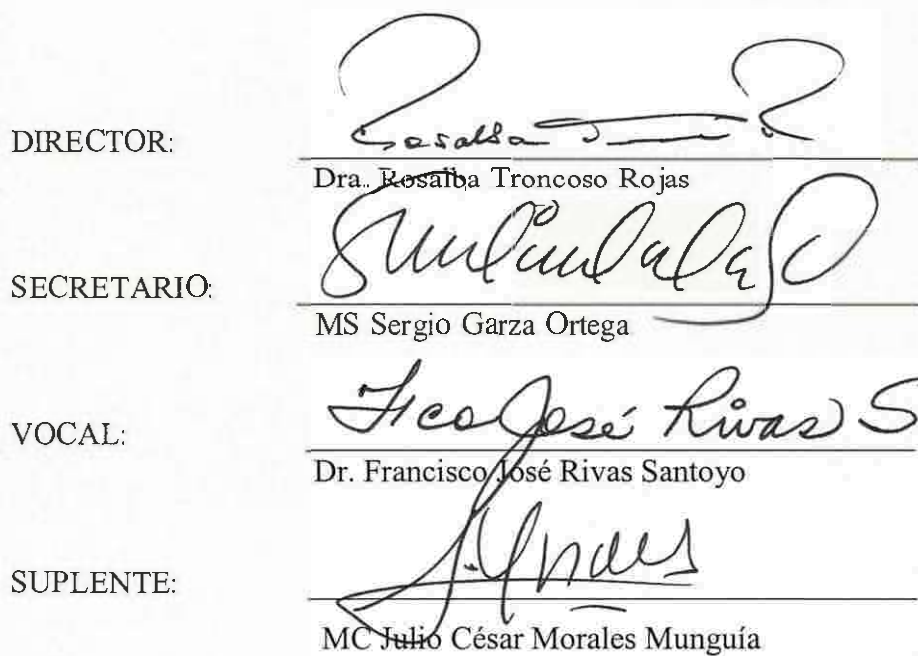 Rosalba
DIRECTOR:
Dra. Rosalba Troncoso Rojas
SECRETARIO:
MS Sergio Garza Ortega
Fco José Rivas S
VOCAL:
Dr. Francisco José Rivas Santoyo
SUPLENTE:
MC Julio César Morales Munguía